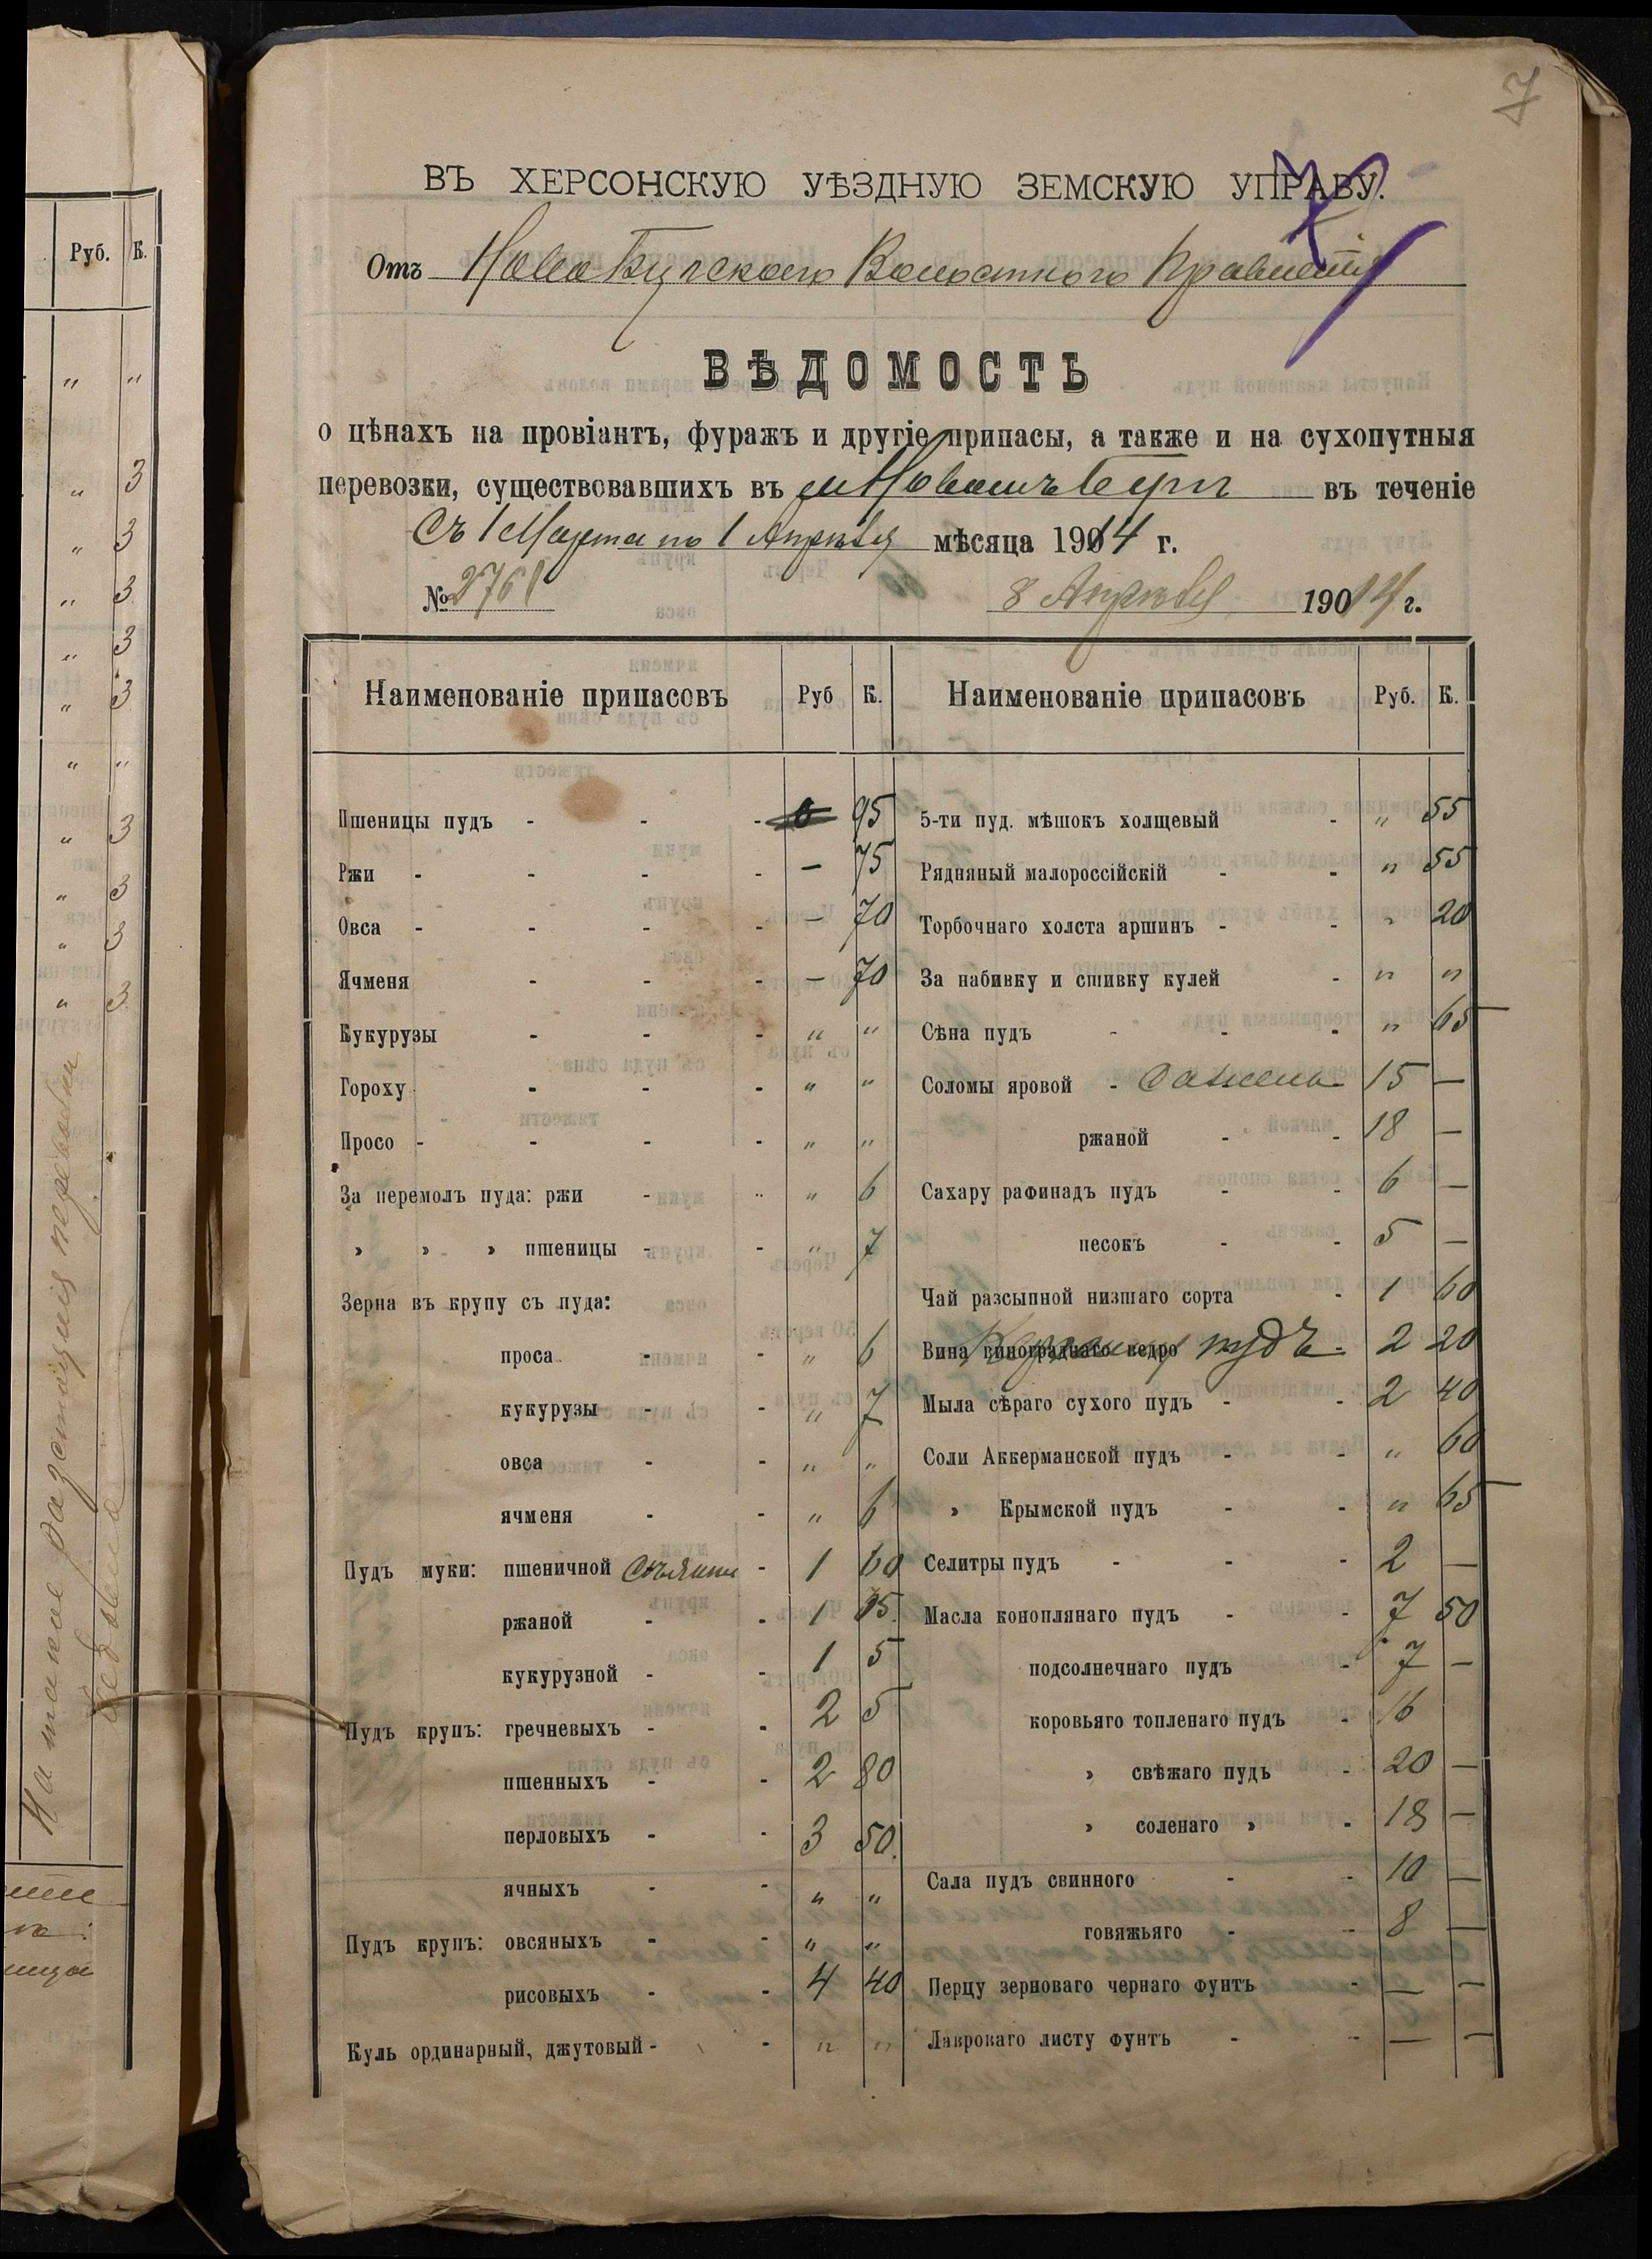 7
ВЪ ХЕРСОНСКУЮ УѢЗДНУЮ ЗЕМСКУЮ УПРАВУ.
Отъ Ново Бугскаго Волостного Правленія
ВѢДОМОСТЬ
о цѣнахъ на провіантъ, фуражъ и другіе припасы, а также и на сухопутныя
перевозки, существовавшихъ въ м Новомъ Бугѣ въ теченіе
Съ 1 Марта по 1 Апрѣля мѣсяца 1914 г.
№ 2761 8 Апрѣля 19014 г.
Наименованіе припасовъ Руб К. Наименованіе припасовъ Руб. К.
Пшеницы пудъ - - - 95 5-ти пуд. мѣшокъ холщевый - " 55
Ржи - - - - — 75 Рядняный малороссійскій - - " 55
Овса - - - - — 70 Торбочнаго холста аршинъ - - " 20
Ячменя - - - — 70 За набивку и сшивку кулей - " "
Кукурузы - - - " " Сѣна пудъ - - - " 65
Гороху - - - " " Соломы яровой - Сажень 15 —
Просо - - - - " " ржаной - - 18 —
За перемолъ пуда: ржи - - " 6 Сахару рафинадъ пудъ - - 6 —
» » » пшеницы - - " 7 песокъ - - 5 —
Зерна въ крупу съ пуда: Чай разсыпной низшаго сорта - 1 60
проса - - " 6 Вина винограднаго ведро пудъ - 2 20
кукурузы - - " 7 Мыла сѣраго сухого пудъ - - 2 40
овса - - " " Соли Аккерманской пудъ - - " 60
ячменя - - " 6 » Крымской пудъ - - " 65
Пудъ муки: пшеничной - 1 60 Селитры пудъ - - - 2 —
ржаной - - 1 15 Масла коноплянаго пудъ - - 7 50
кукурузной - - 1 5 подсолнечнаго пудъ - 7 —
Пудъ крупъ: гречневыхъ - - 2 5 коровьяго топленаго пудъ - 16
пшенныхъ - - 2 80 » свѣжаго пудъ - 20 —
перловыхъ - - 3 50. » соленаго » - 18 —
ячныхъ - - " " Сала пудъ свинного - - 10 —
Пудъ крупъ: овсяныхъ - - " " говяжьяго - - 8 —
рисовыхъ - - 4 40 Перцу зерноваго чернаго фунтъ - — —
Куль ординарный, джутовый - - " " Лавроваго листу фунтъ - - — —
Руб. К.
" "
" 3
" 3
" 3
" 3
" 3
" "
" 3
" 3
" 3
" 3
На такое разстоянія перевозки